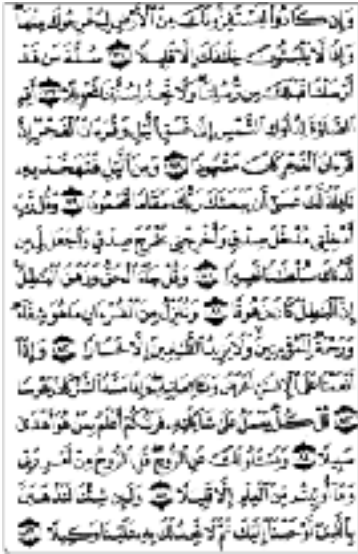 وَإِن كَادُوا۟ لَيَسْتَفِزُّونَكَ مِنَ ٱلْأَرْضِ لِيُخْرِجُوكَ مِنْهَا
وَإِذًا لَّا يَلْبَثُونَ خِلَٰفَكَ إِلَّا قَلِيلًا ۝٧٦ سُنَّةَ مَن قَدْ
أَرْسَلْنَا قَبْلَكَ مِن رُّسُلِنَا وَلَا تَجِدُ لِسُنَّتِنَا تَحْوِيلًا ۝٧٧ أَقِمِ
ٱلصَّلَوٰةَ لِدُلُوكِ ٱلشَّمْسِ إِلَىٰ غَسَقِ ٱلَّيْلِ وَقُرْءَانَ ٱلْفَجْرِ إِنَّ
قُرْءَانَ ٱلْفَجْرِ كَانَ مَشْهُودًا ۝٧٨ وَمِنَ ٱلَّيْلِ فَتَهَجَّدْ بِهِۦ
نَافِلَةً لَّكَ عَسَىٰ أَن يَبْعَثَكَ رَبُّكَ مَقَامًا مَّحْمُودًا ۝٧٩ وَقُل رَّبِّ
أَدْخِلْنِى مُدْخَلَ صِدْقٍ وَأَخْرِجْنِى مُخْرَجَ صِدْقٍ وَٱجْعَل لِّى مِن
لَّدُنكَ سُلْطَٰنًا نَّصِيرًا ۝٨٠ وَقُلْ جَآءَ ٱلْحَقُّ وَزَهَقَ ٱلْبَٰطِلُ
إِنَّ ٱلْبَٰطِلَ كَانَ زَهُوقًا ۝٨١ وَنُنَزِّلُ مِنَ ٱلْقُرْءَانِ مَا هُوَ شِفَآءٌ
وَرَحْمَةٌ لِّلْمُؤْمِنِينَ وَلَا يَزِيدُ ٱلظَّٰلِمِينَ إِلَّا خَسَارًا ۝٨٢ وَإِذَآ
أَنْعَمْنَا عَلَى ٱلْإِنسَٰنِ أَعْرَضَ وَنَـَٔا بِجَانِبِهِۦ وَإِذَا مَسَّهُ ٱلشَّرُّ كَانَ يَـُٔوسًا
۝٨٣ قُلْ كُلٌّ يَعْمَلُ عَلَىٰ شَاكِلَتِهِۦ فَرَبُّكُمْ أَعْلَمُ بِمَنْ هُوَ أَهْدَىٰ
سَبِيلًا ۝٨٤ وَيَسْـَٔلُونَكَ عَنِ ٱلرُّوحِ قُلِ ٱلرُّوحُ مِنْ أَمْرِ رَبِّى
وَمَآ أُوتِيتُم مِّنَ ٱلْعِلْمِ إِلَّا قَلِيلًا ۝٨٥ وَلَئِن شِئْنَا لَنَذْهَبَنَّ
بِٱلَّذِىٓ أَوْحَيْنَآ إِلَيْكَ ثُمَّ لَا تَجِدُ لَكَ بِهِۦ عَلَيْنَا وَكِيلًا ۝٨٦